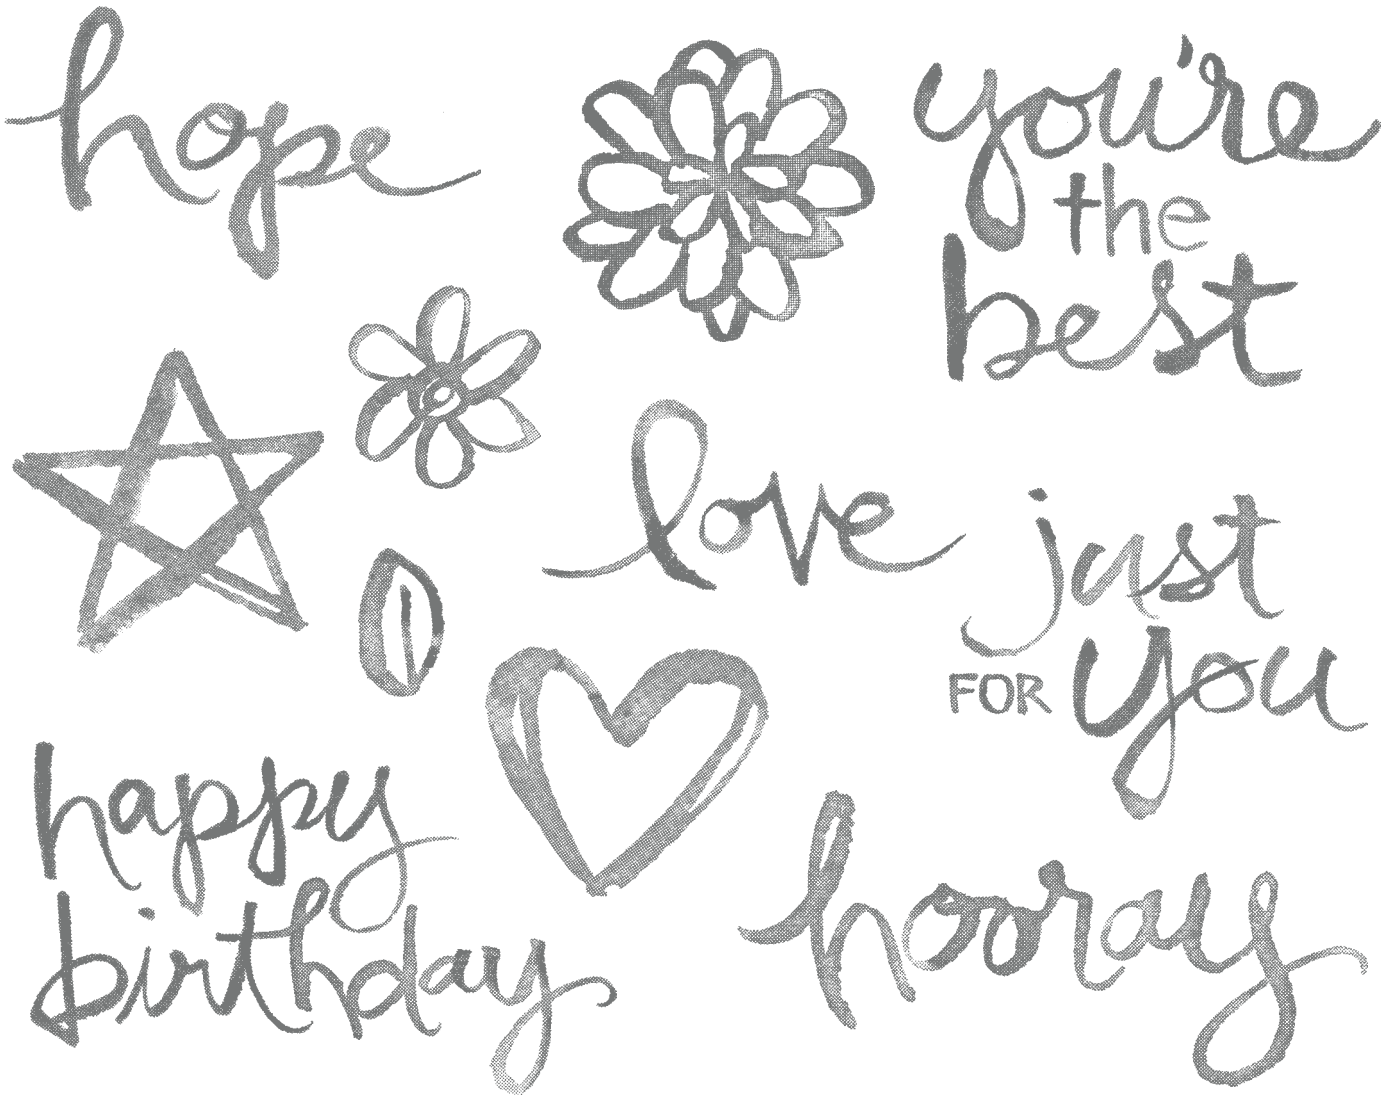 hope
you're
the
best
love
just
FOR you
happy
birthday
hooray